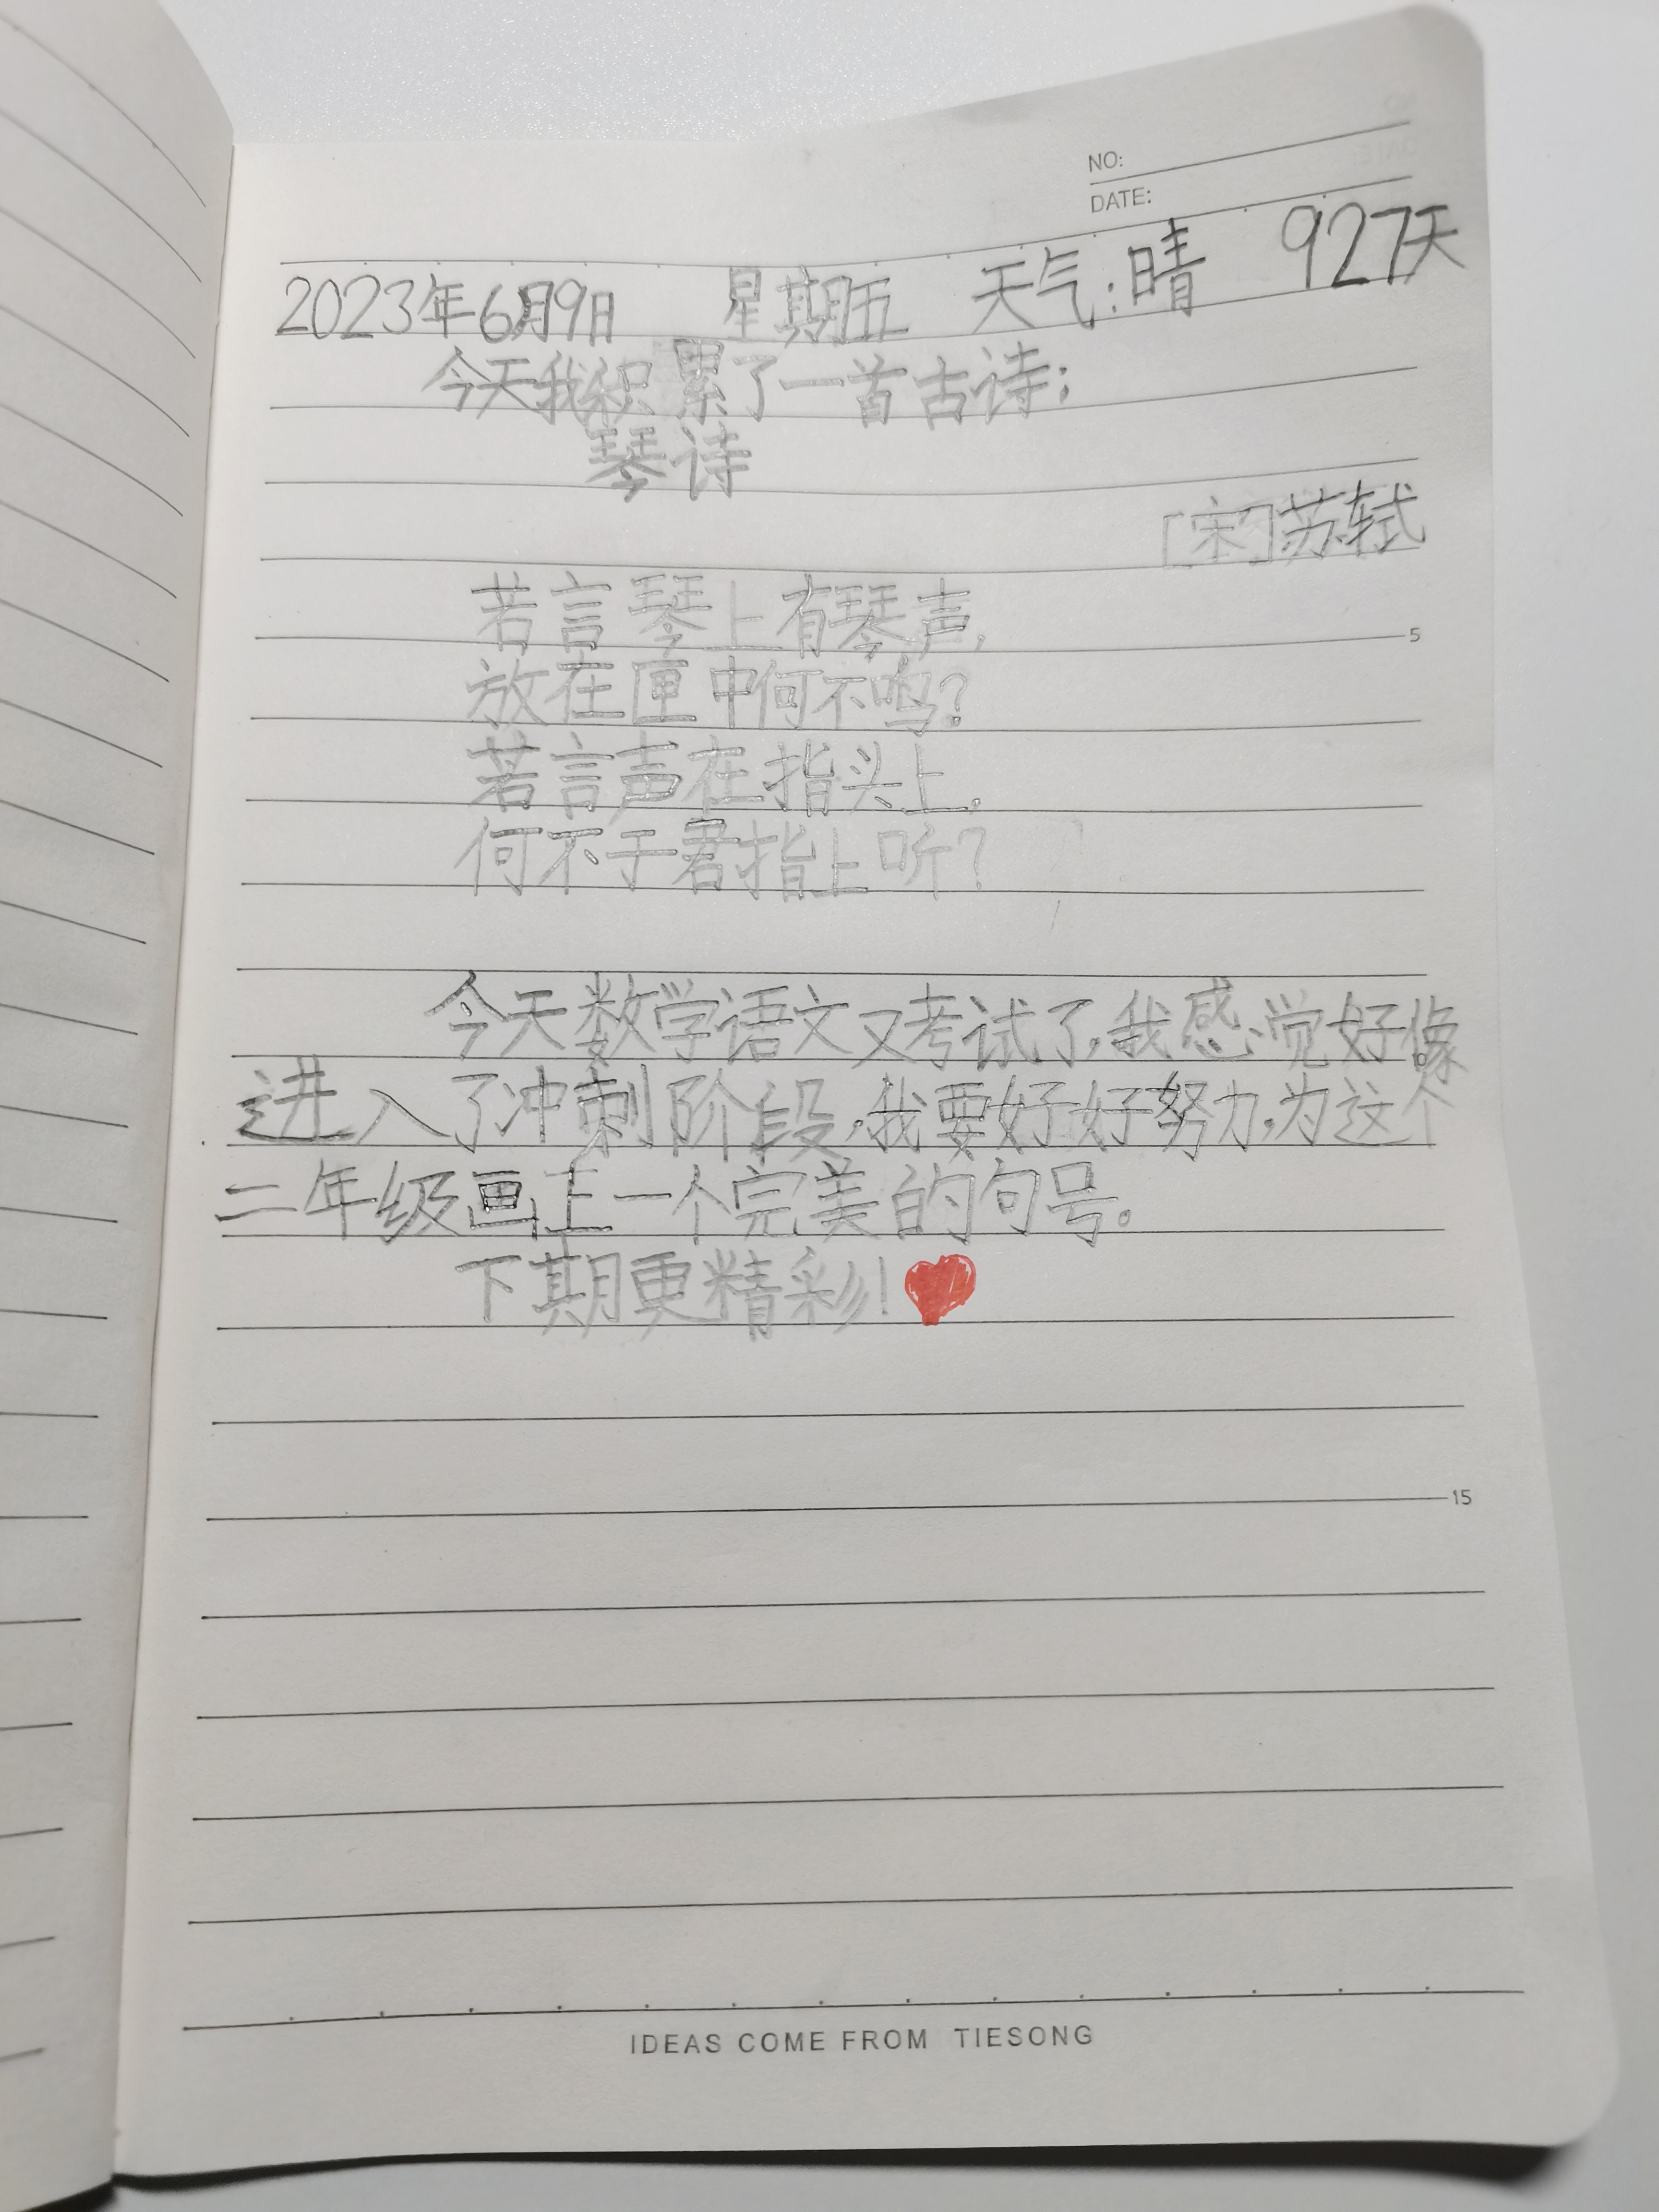 NO:
DATE:
2023年6月9日 星期五 天气:晴 927天
今天我积累了一首古诗:
琴诗
[宋]苏轼
若言琴上有琴声,
放在匣中何不鸣?
若言声在指头上,
何不于君指上听?
5
今天数学语文又考试了,我感觉好像
进入了冲刺阶段,我要好好努力,为这个
二年级画上一个完美的句号。
下期更精彩!
15
IDEAS COME FROM TIESONG